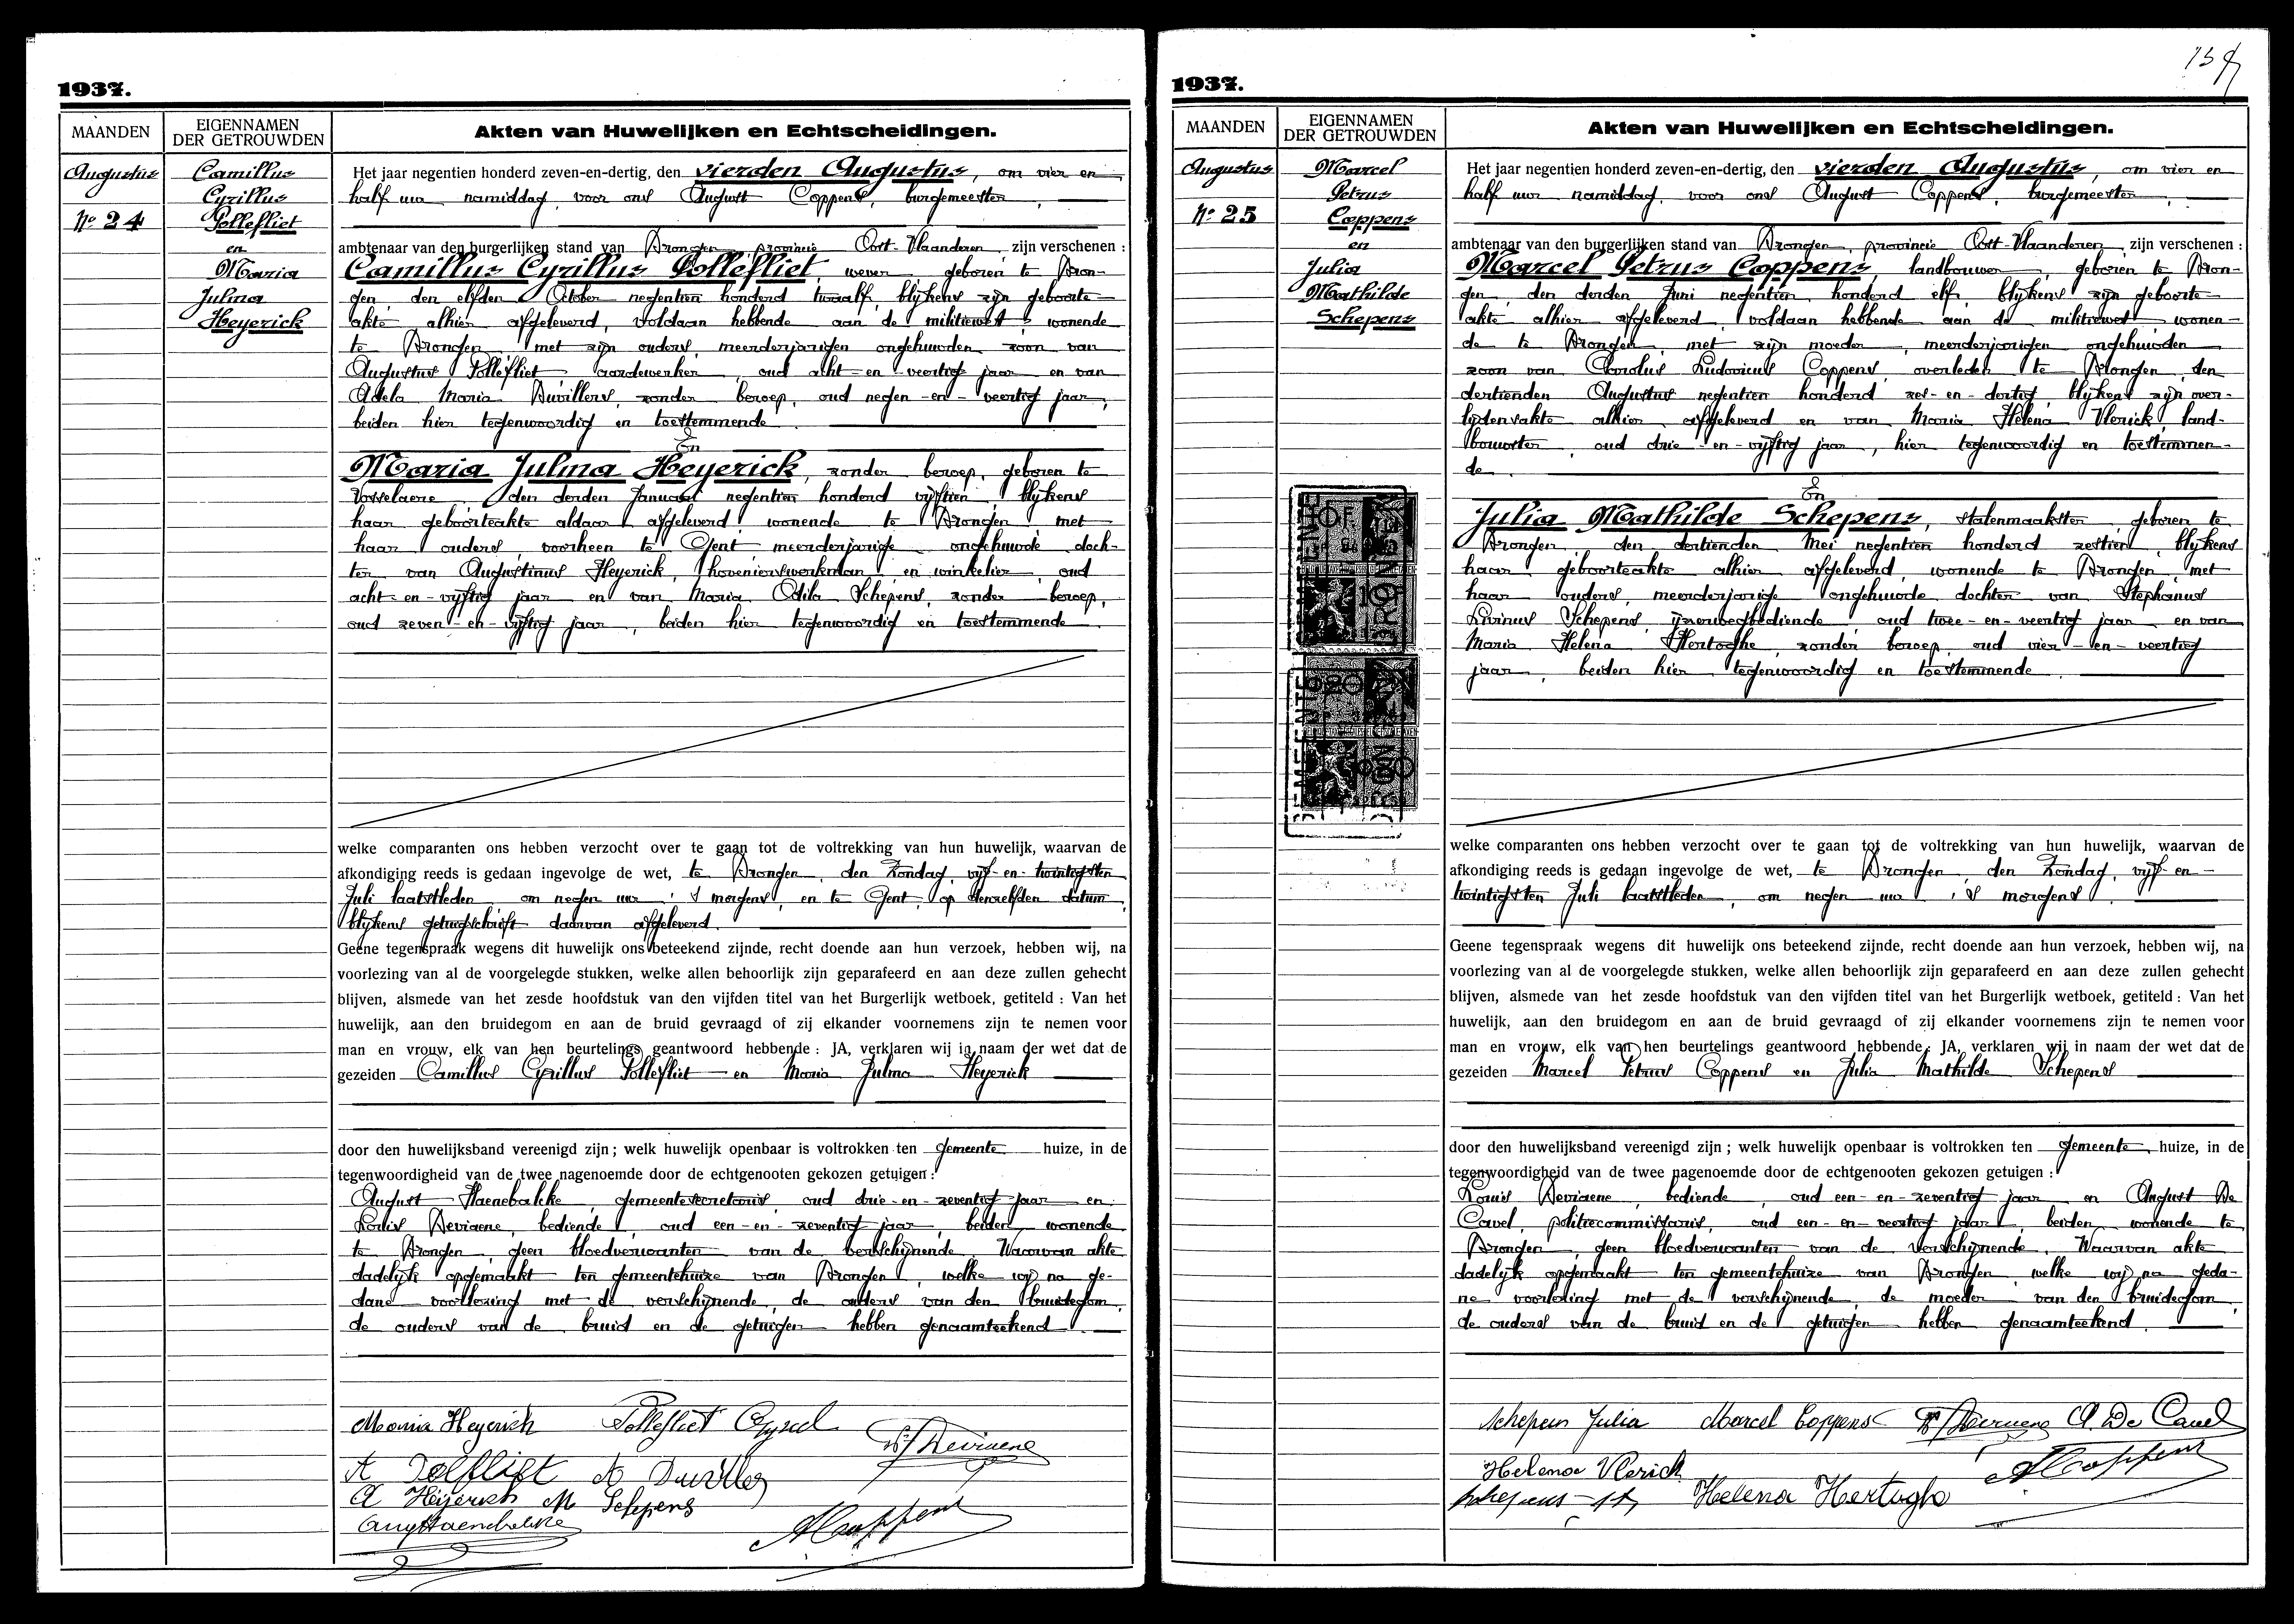 1937.
MAANDEN
EIGENNAMEN
DER GETROUWDEN
Akten van Huwelijken en Echtscheidingen.
Augustus
Nº 24
Camillus
Cyrillus
Pollefliet
en
Maria
Julma
Heyerick
Het jaar negentien honderd zeven-en-dertig, den vierden Augustus, om vier en
half uur namiddag, voor ons August Coppens, burgemeester,
ambtenaar van den burgerlijken stand van Drongen, provincie Oost-Vlaanderen, zijn verschenen :
Camillus Cyrillus Pollefliet, wever, geboren te Dron-
gen, den elfden October negentien honderd twaalf, blijkens zijn geboorte-
akte alhier afgeleverd, voldaan hebbende aan de militiewet, wonende
te Drongen met zijn ouders, meerderjarigen ongehuwden zoon van
Augustus Pollefliet aardewerker, oud acht-en-veertig jaar en van
Adela Maria Duvillers, zonder beroep, oud negen-en-veertig jaar,
beiden hier tegenwoordig en toestemmende.
En
Maria Julma Heyerick, zonder beroep, geboren te
Vosselaere, den derden Januari negentien honderd vijftien, blijkens
haar geboorteakte aldaar afgeleverd, wonende te Drongen, met
haar ouders, voorheen te Gent meerderjarige ongehuwde doch-
ter van Augustinus Heyerick, hovenierswerkman, en winkelier, oud
acht-en-vijftig jaar en van Maria Odila Schepens, zonder beroep,
oud zeven-en-vijftig jaar, beiden hier tegenwoordig en toestemmende.
welke comparanten ons hebben verzocht over te gaan tot de voltrekking van hun huwelijk, waarvan de
afkondiging reeds is gedaan ingevolge de wet, te Drongen, den Zondag, vijf-en-twintigsten
Juli laatstleden, om negen uur 's morgens, en te Gent, op denzelfden datum,
blijkens getuigschrift daarvan afgeleverd.
Geene tegenspraak wegens dit huwelijk ons beteekend zijnde, recht doende aan hun verzoek, hebben wij, na
voorlezing van al de voorgelegde stukken, welke allen behoorlijk zijn geparafeerd en aan deze zullen gehecht
blijven, alsmede van het zesde hoofdstuk van den vijfden titel van het Burgerlijk wetboek, getiteld : Van het
huwelijk, aan den bruidegom en aan de bruid gevraagd of zij elkander voornemens zijn te nemen voor
man en vrouw, elk van hen beurtelings geantwoord hebbende : JA, verklaren wij in naam der wet dat de
gezeiden Camillus Cyrillus Pollefliet en Maria Julma Heyerick
door den huwelijksband vereenigd zijn ; welk huwelijk openbaar is voltrokken ten gemeente huize, in de
tegenwoordigheid van de twee nagenoemde door de echtgenooten gekozen getuigen :
August Haenebalke, gemeentesecretaris, oud drie-en-zeventig jaar en
Louis Deviaene, bediende, oud een-en-zeventig jaar, beiden wonende
te Drongen, geen bloedverwanten van de verschijnende. Waarvan akte
dadelijk opgemaakt ten gemeentehuize van Drongen, welke wij na ge-
dane voorlezing met de verschijnende, de ouders van den bruidegom,
de ouders van de bruid en de getuigen hebben genaamteekend.
Maria Heyerick Pollefliet Cyriel
A Heyerick M Schepens
A Coppens
1937.
MAANDEN
EIGENNAMEN
DER GETROUWDEN
Akten van Huwelijken en Echtscheidingen.
Augustus
Nº 25
Marcel
Petrus
Coppens
en
Julia
Mathilde
Schepens
Het jaar negentien honderd zeven-en-dertig, den vierden Augustus, om vier en
half uur namiddag, voor ons August Coppens, burgemeester,
ambtenaar van den burgerlijken stand van Drongen, provincie Oost-Vlaanderen, zijn verschenen :
Marcel Petrus Coppens, landbouwer, geboren te Dron-
gen, den derden Juni negentien honderd elf, blijkens zijn geboorte-
akte alhier afgeleverd, voldaan hebbende aan de militiewet wonen-
de te Drongen, met zijn moeder, meerderjarigen ongehuwden
zoon van Carolus Ludovicus Coppens, overleden te Drongen, den
dertienden Augustus negentien honderd zes-en-dertig, blijkens zijn over-
lijdensakte alhier afgeleverd en van Maria Helena Vlerick, land-
bouwster, oud drie-en-vijftig jaar, hier tegenwoordig en toestemmen-
de.
En
Julia Mathilde Schepens, stalenmaakster, geboren te
Drongen, den dertienden Mei negentien honderd zestien, blijkens
haar geboorteakte alhier afgeleverd, wonende te Drongen, met
haar ouders, meerderjarige ongehuwde dochter van Stephanus
Livinus Schepens, ijzerwegbediende, oud twee-en-veertig jaar en van
Maria Helena Hertoghe, zonder beroep, oud vier-en-veertig
jaar, beiden hier tegenwoordig en toestemmende.
welke comparanten ons hebben verzocht over te gaan tot de voltrekking van hun huwelijk, waarvan de
afkondiging reeds is gedaan ingevolge de wet, te Drongen, den Zondag, vijf-en-
twintigsten Juli laatstleden, om negen uur 's morgens.
Geene tegenspraak wegens dit huwelijk ons beteekend zijnde, recht doende aan hun verzoek, hebben wij, na
voorlezing van al de voorgelegde stukken, welke allen behoorlijk zijn geparafeerd en aan deze zullen gehecht
blijven, alsmede van het zesde hoofdstuk van den vijfden titel van het Burgerlijk wetboek, getiteld : Van het
huwelijk, aan den bruidegom en aan de bruid gevraagd of zij elkander voornemens zijn te nemen voor
man en vrouw, elk van hen beurtelings geantwoord hebbende : JA, verklaren wij in naam der wet dat de
gezeiden Marcel Petrus Coppens en Julia Mathilde Schepens
door den huwelijksband vereenigd zijn ; welk huwelijk openbaar is voltrokken ten gemeente huize, in de
tegenwoordigheid van de twee nagenoemde door de echtgenooten gekozen getuigen :
Louis Deviaene, bediende, oud een-en-zeventig jaar en August De
Cavel, politiecommissaris, oud een-en-veertig jaar, beiden wonende te
Drongen, geen bloedverwanten van de verschijnende. Waarvan akte
dadelijk opgemaakt ten gemeentehuize van Drongen, welke wij na geda-
ne voorlezing met de verschijnende, de moeder van den bruidegom,
de ouders van de bruid en de getuigen hebben genaamteekend.
Schepens Julia Marcel Coppens A De Cavel
Helena Vlerick
A Coppens
Schepens Helena Hertoghe